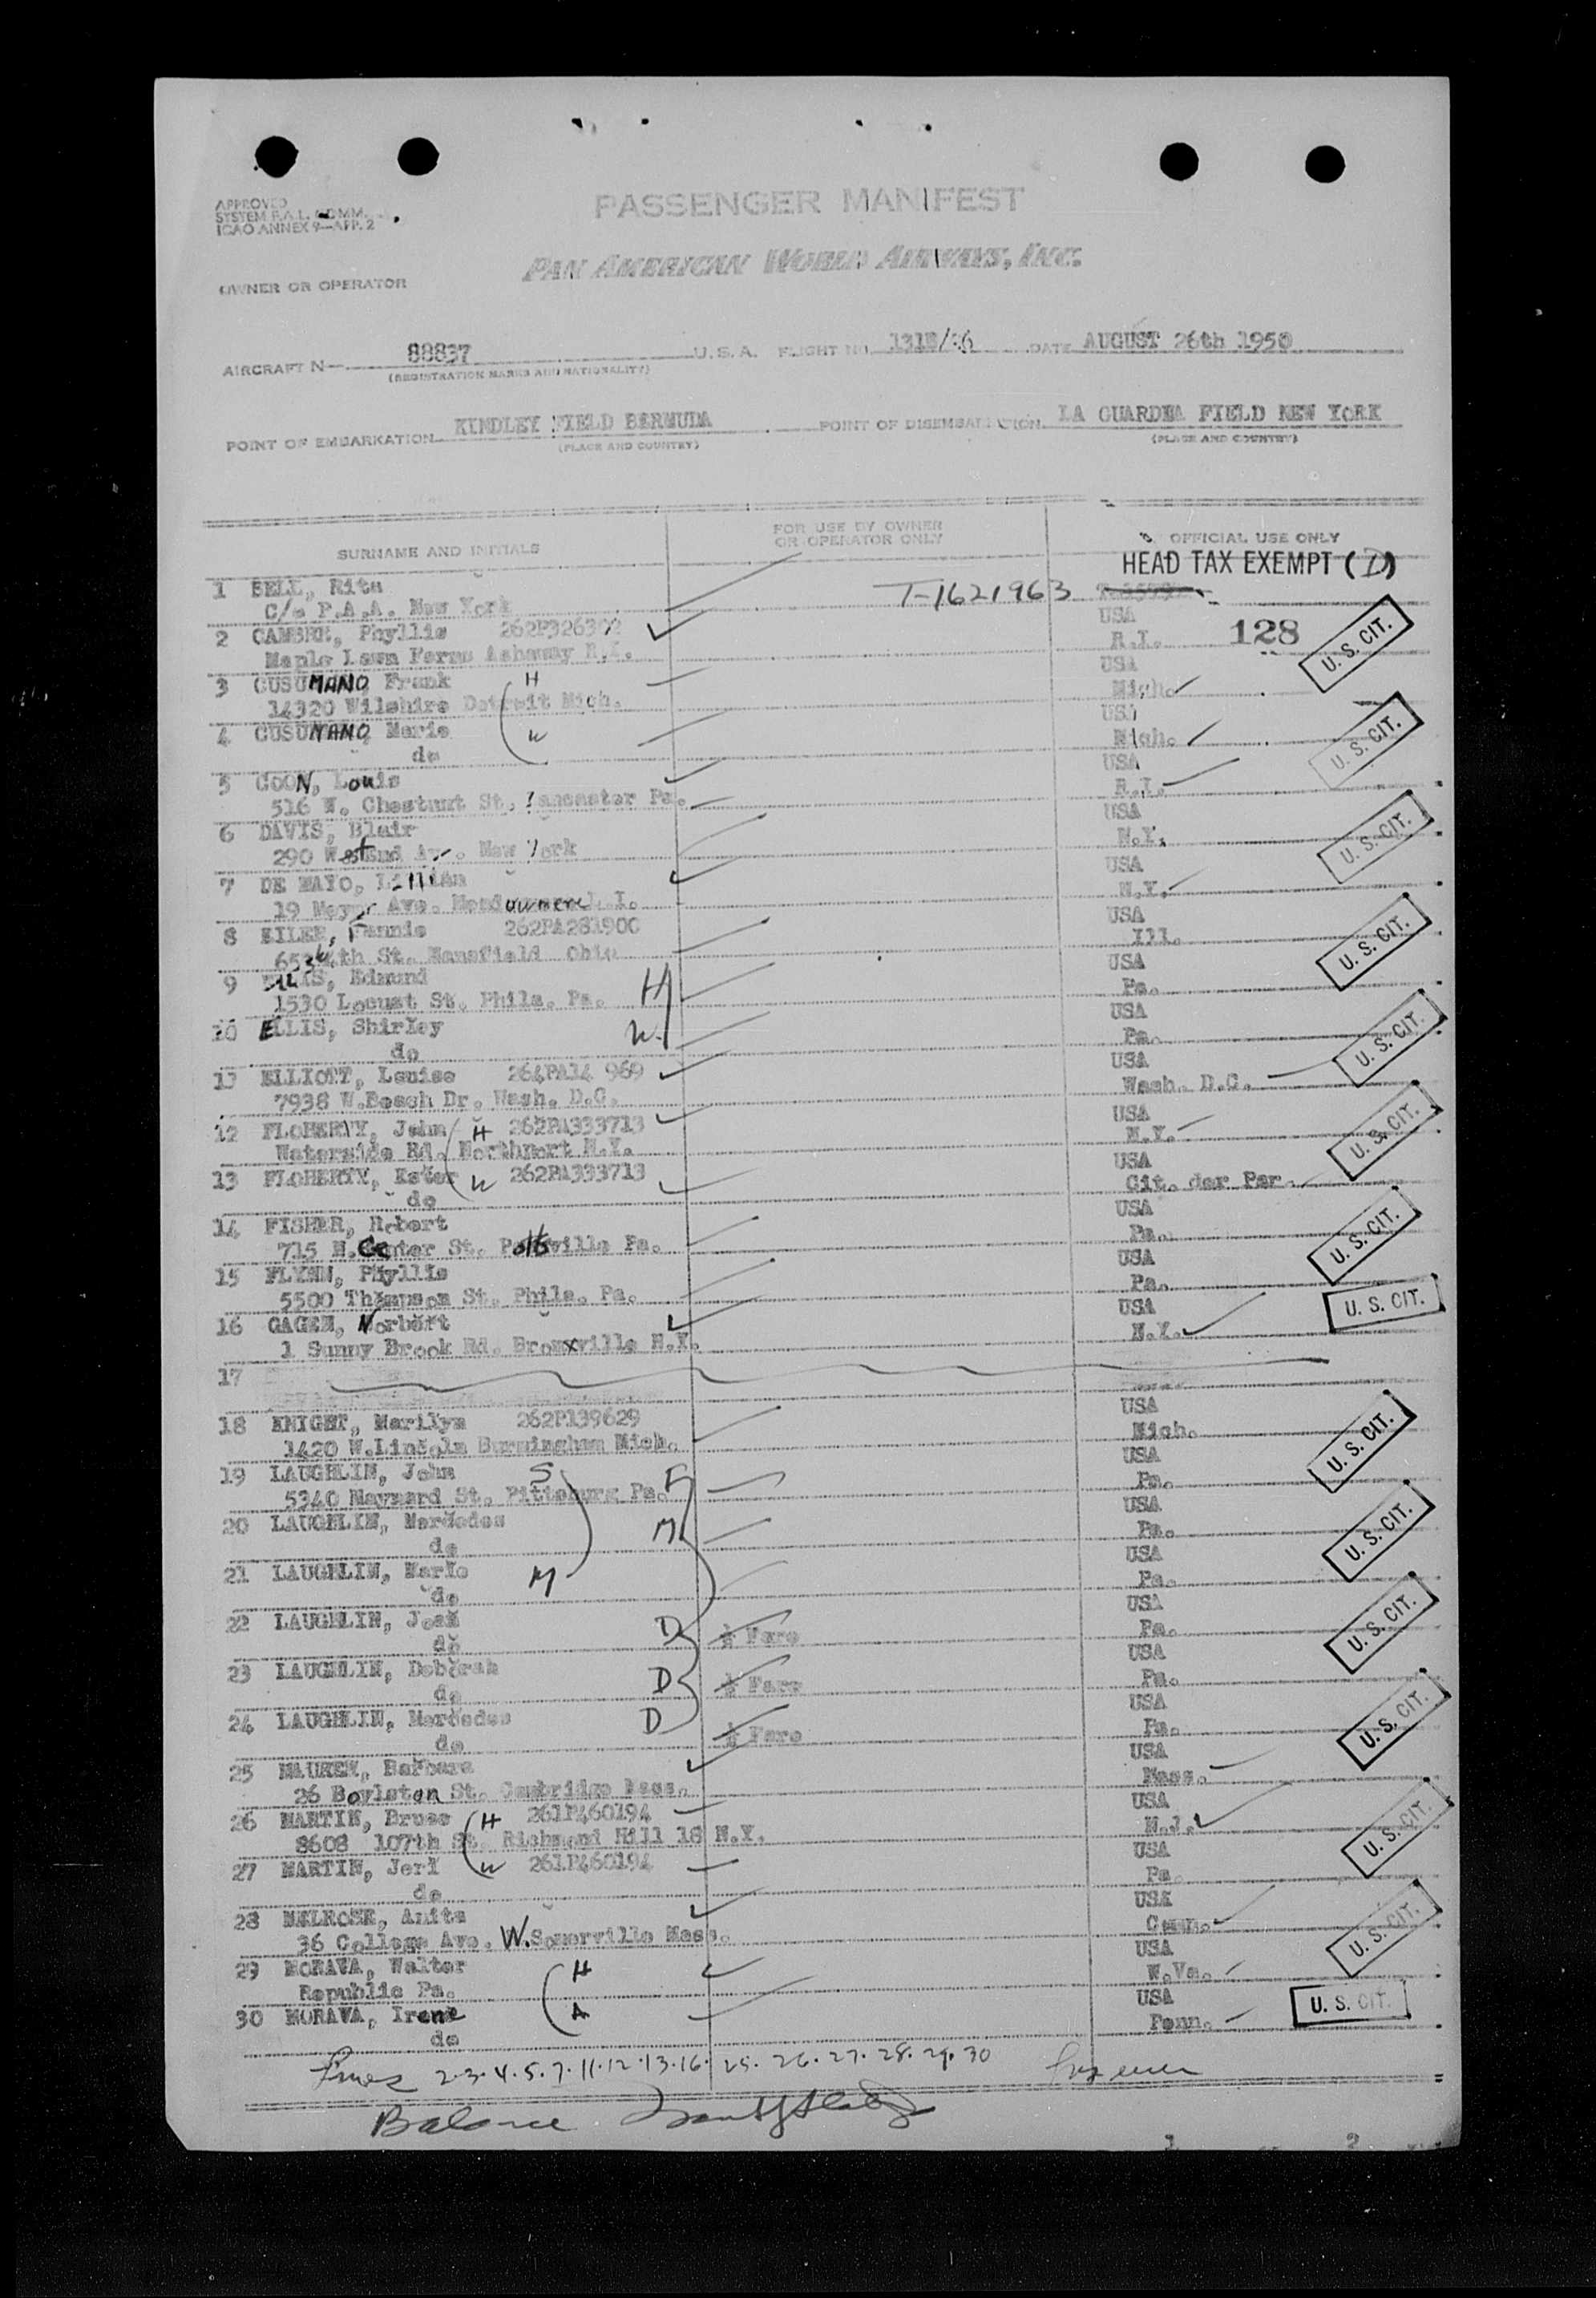 APPROVED
SYSTEM F.A.L. COMM.
ICAO ANNEX 9—APP. 2
PASSENGER MANIFEST
PAN AMERICAN WORLD AIRWAYS, INC.
OWNER OR OPERATOR
AIRCRAFT N— 88837 U.S.A. FLIGHT NO. DATE AUGUST 26th 1950
(REGISTRATION MARKS AND NATIONALITY)
POINT OF EMBARKATION KINDLEY FIELD BERMUDA POINT OF DISEMBARKATION LA GUARDIA FIELD NEW YORK
(PLACE AND COUNTRY) (PLACE AND COUNTRY)
SURNAME AND INITIALS FOR USE BY OWNER OR OPERATOR ONLY OFFICIAL USE ONLY
HEAD TAX EXEMPT (D)
1 BELL, Rita T-1621963
C/o P.A.A. New York USA
2 CAMBRE, Phyllis R.I. 128 U. S. CIT.
Maple Lawn Farms Ashaway R.I. USA
3 CUSUMANO, Frank H Mich.
14320 Wilshire Detroit Mich. USA
4 CUSUMANO, Marie W Mich. U. S. CIT.
do USA
5 COON, Louis R.I.
516 W. Chestnut St. Lancaster Pa. USA
6 DAVIS, Blair N.Y. U. S. CIT.
290 West End Av. New York USA
7 DE MAYO, Lillian N.Y.
19 Ave. USA
8 EILER, Fannie 262PA281900 Ill. U. S. CIT.
4th St. Mansfield Ohio USA
9 ELLIS, Edmund Pa.
1530 Locust St. Phila. Pa. H USA
10 ELLIS, Shirley W Pa. U. S. CIT.
do USA
11 ELLIOTT, Louise 264PA14 969 Wash. D.C.
7938 W.Beach Dr. Wash. D.C. USA
12 FLOHERTY, John H 262PA333713 N.Y. U. S. CIT.
Waterside Rd. Northport N.Y. USA
13 FLOHERTY, Ester W 262PA333713 Cit. der Par.
do USA
14 FISHER, Robert Pa. U. S. CIT.
715 N.Center St. Pottsville Pa. USA
15 FLYNN, Phyllis Pa.
5500 Thompson St. Phila. Pa. USA U. S. CIT.
16 GAGEN, Norbert N.Y.
1 Sunny Brook Rd. Bronxville N.Y.
17
USA
18 KNIGHT, Marilyn 262P139629 Mich.
1420 W.Lincoln Burmingham Mich. USA U. S. CIT.
19 LAUGHLIN, John S F Pa.
5340 Maynard St. Pittsburg Pa. USA
20 LAUGHLIN, Mercedes M Pa. U. S. CIT.
do USA
21 LAUGHLIN, Marie M Pa.
do USA
22 LAUGHLIN, Joan D ½ Fare Pa. U. S. CIT.
do USA
23 LAUGHLIN, Deborah D ½ Fare Pa.
do USA
24 LAUGHLIN, Mercedes D ½ Fare Pa. U. S. CIT.
do USA
25 MAURER, Barbara Mass.
26 Boylston St. Cambridge Mass. USA
26 MARTIN, Bruce H 261P460194 N.J. U. S. CIT.
8608 107th St. Richmond Hill 18 N.Y. USA
27 MARTIN, Jeri W 261P460194 Pa.
do USA
28 MELROSE, Anita Conn. U. S. CIT.
36 College Ave. W.Somerville Mass. USA
29 MORAVA, Walter H W.Va.
Republic Pa. USA U. S. CIT.
30 MORAVA, Irene Penn.
do
Lines 2-3-4-5-7-11-12-13-16-25-26-27-28-29-30
Balance
1 2